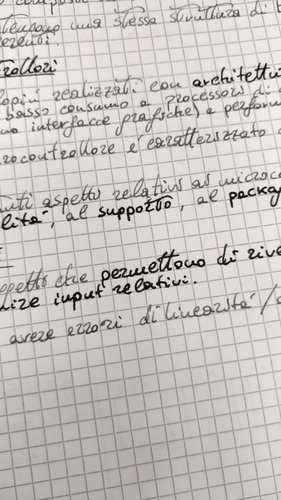 una stessa struttura di
realizzati con architettu
basso consumo e processori di
interfacce grafiche) e perform
rocontrollore è caratterizzato
aspetti relativi ai microco
lità, al supporto, al packag
oggetto che permettono di rive
lize input relativi.
avere errori di linearità /